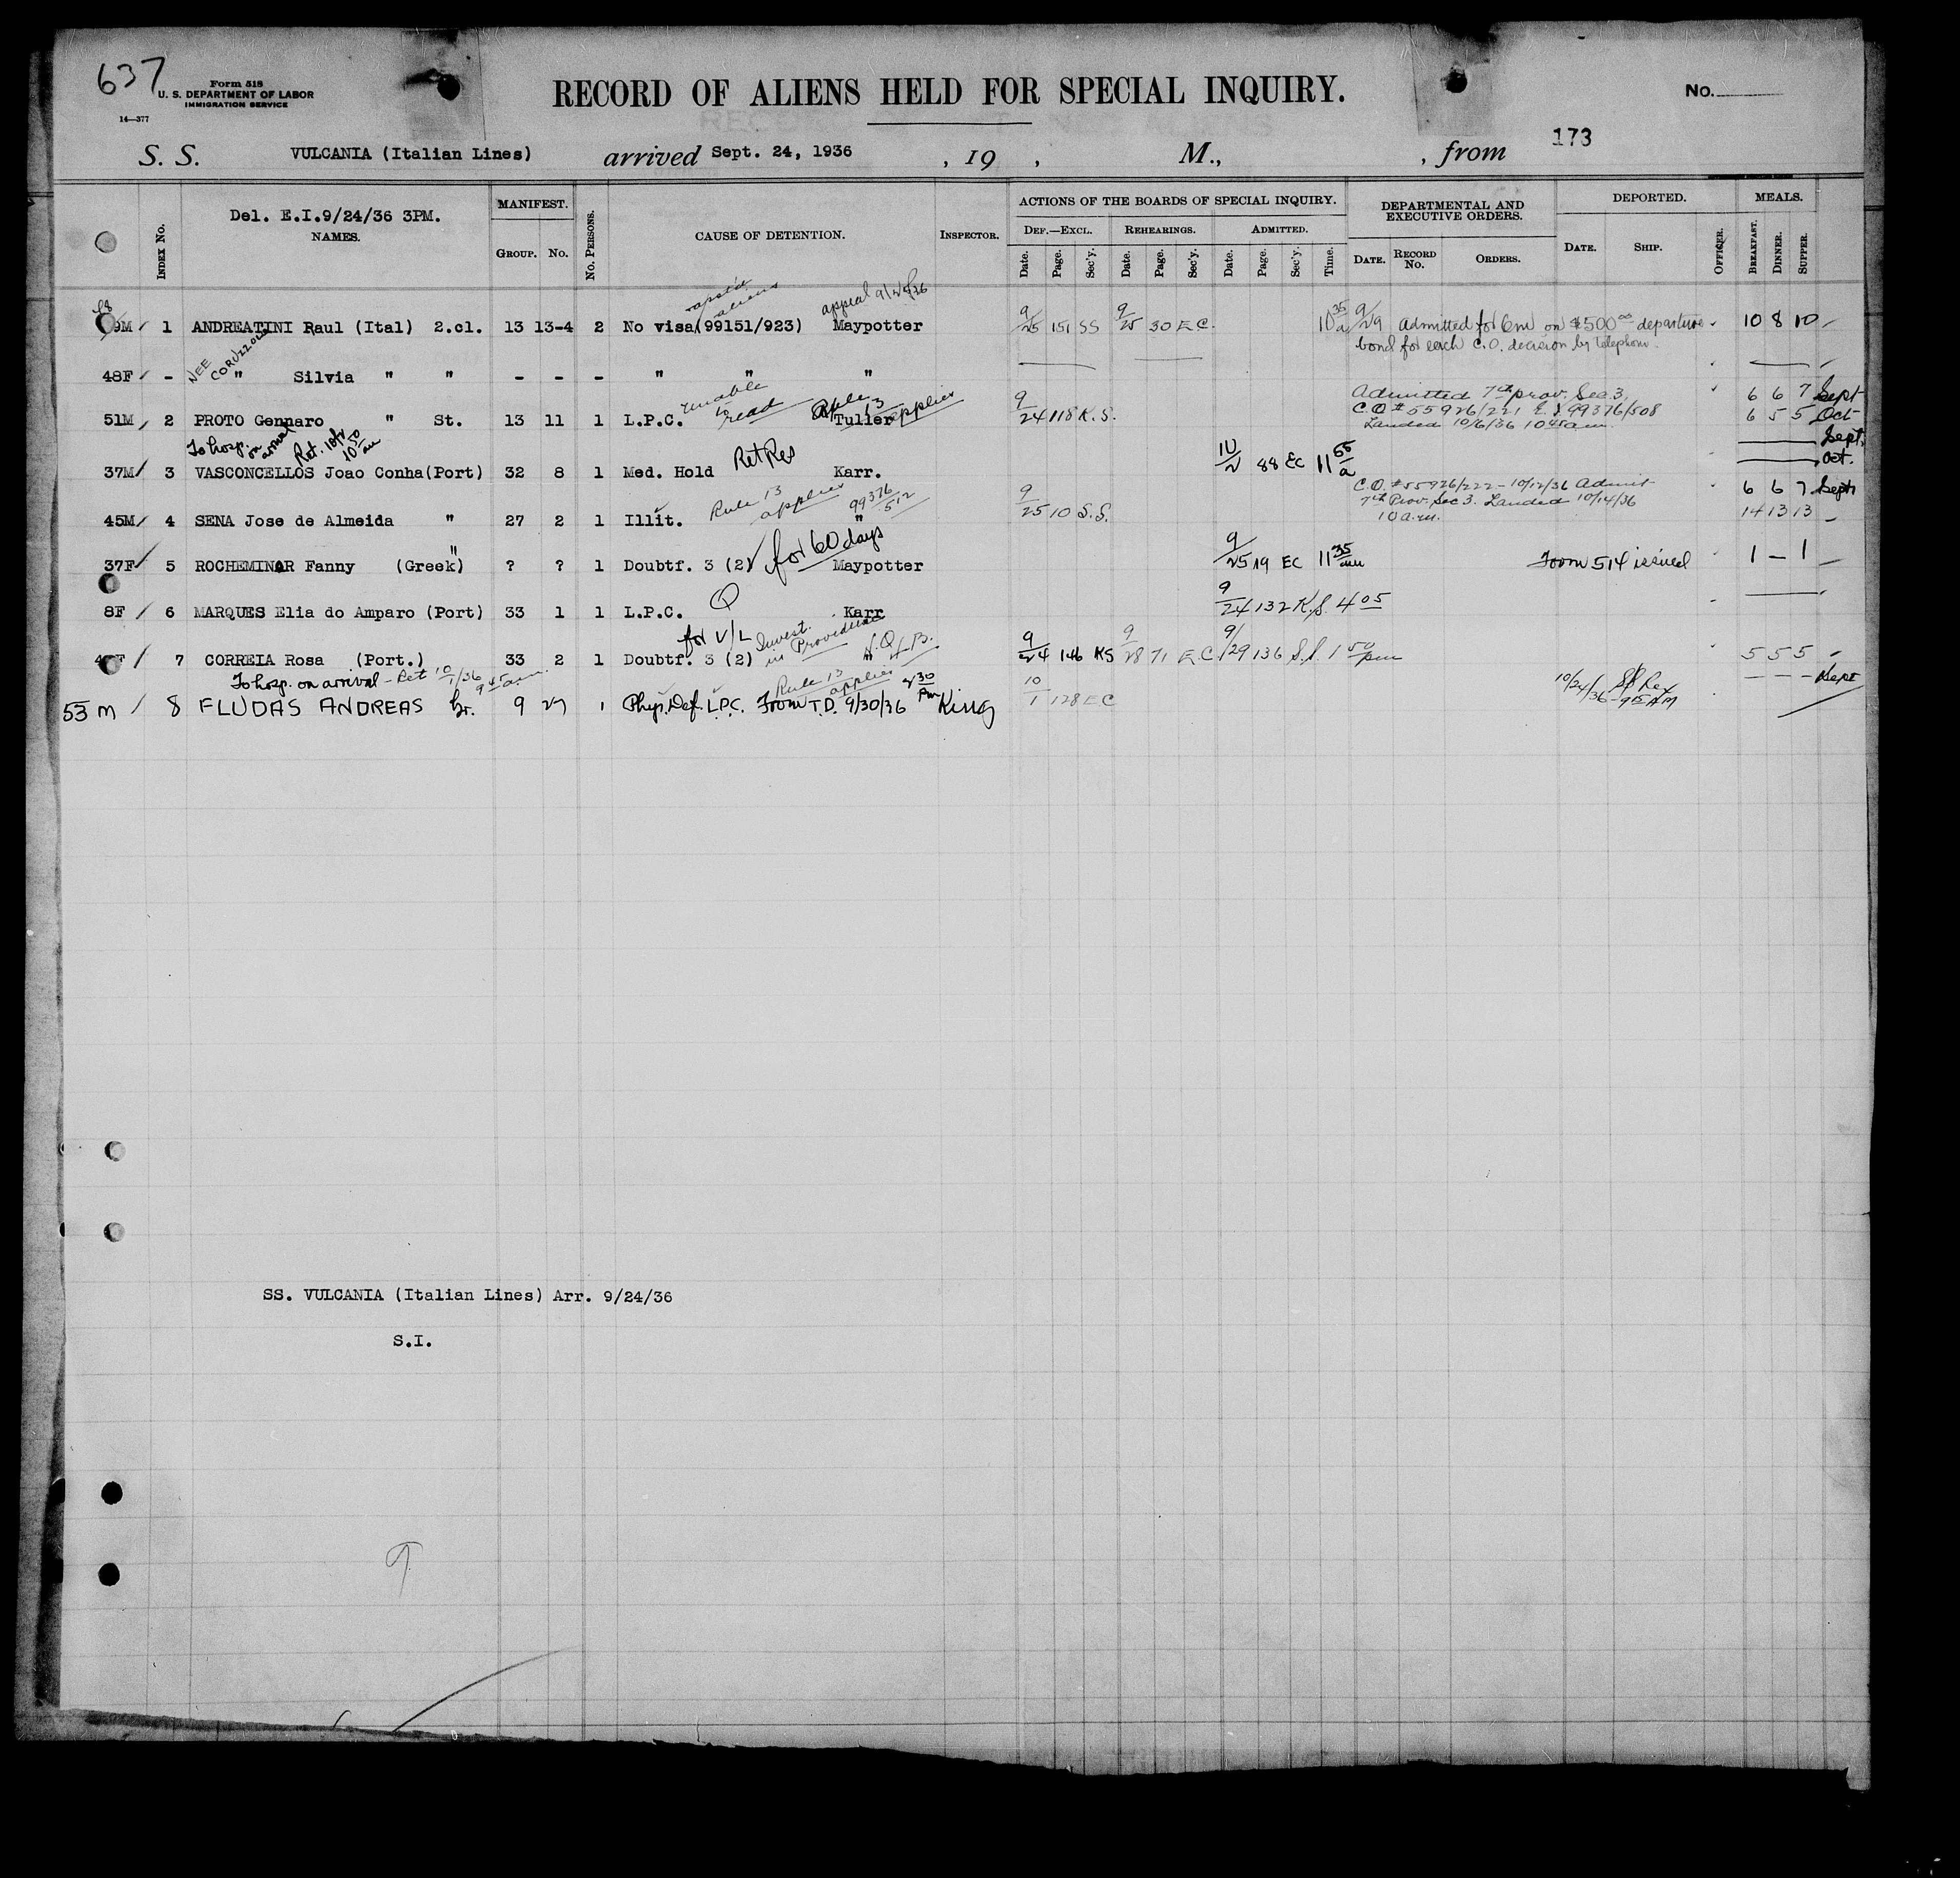 637
Form 518
U. S. DEPARTMENT OF LABOR
IMMIGRATION SERVICE
14—377
RECORD OF ALIENS HELD FOR SPECIAL INQUIRY.
No.
173
S. S. VULCANIA (Italian Lines) arrived Sept. 24, 1936 , 19 , M., , from
Del. E.I.9/24/36 3PM.
INDEX No. NAMES. MANIFEST. GROUP. No. No. PERSONS. CAUSE OF DETENTION. INSPECTOR.
ACTIONS OF THE BOARDS OF SPECIAL INQUIRY.
DEF.—EXCL. REHEARINGS. ADMITTED.
Date. Page. Sec'y. Date. Page. Sec'y. Date. Page. Sec'y. Time.
DEPARTMENTAL AND EXECUTIVE ORDERS.
DATE. RECORD No. ORDERS.
DEPORTED.
DATE. SHIP. OFFICER.
MEALS.
BREAKFAST. DINNER. SUPPER.
aliens appeal
9M 1 ANDREATINI Raul (Ital) 2.cl. 13 13-4 2 No visa(99151/923) Maypotter 9/25 151 SS 9/25 30 E C. 10 35 a 9/29 Admitted for 6m on $500 00 departure 10 8 10
bond for each C.O. decision by telephone.
NEE
48F - " Silvia " " - - - " " "
unable to read Rule 13 applies
51M 2 PROTO Gennaro " St. 13 11 1 L.P.C. Tuller 9/24 118 K.S. Admitted 7th prov. Sec 3, 6 6 7 Sept
C.O # 55926/221 E.I 99376/508 6 5 5 Oct
Landed 10/6/36 10 45 a.m.
To hosp. on arrival Ret. 10 50 am
37M 3 VASCONCELLOS Joao Conha(Port) 32 8 1 Med. Hold Ret Res Karr. 10/2 88 EC 11 55 a Sept. Oct.
Rule 13 applies 99376/512
45M 4 SENA Jose de Almeida " 27 2 1 Illit. " 9/25 10 S.S. C.O. #55926/222 - 10/12/36 Admit 6 6 7 Sept
7th Prov. Sec 3. Landed 10/14/36 14 13 13
10 a.m.
37F 5 ROCHEMINOR Fanny (Greek) ? ? 1 Doubtf. 3 (2) for 60 days Maypotter 9/25 19 EC 11 35 am Form 514 issued 1 - 1
8F 6 MARQUES Elia do Amparo (Port) 33 1 1 L.P.C. Q Karr 9/24 132 K.S. 4 05
for V/L Invest. in Providence
7 CORREIA Rosa (Port.) 33 2 1 Doubtf. 3 (2) " 9/24 146 KS 9/28 71 E.C 9/29 136 S.S. 1 50 pm 5 5 5
To hosp. on arrival - Ret 10/1/36 9 45 a.m. Rule 13 applies
53 M 8 FLUDAS ANDREAS Gr. 9 27 1 Phys. Def. L.P.C. From T.D. 9/30/36 2 30 PM King 10/1 128 EC 10/24/36 SS Rex 9 AM - - - Sept
SS. VULCANIA (Italian Lines) Arr. 9/24/36
S.I.
9